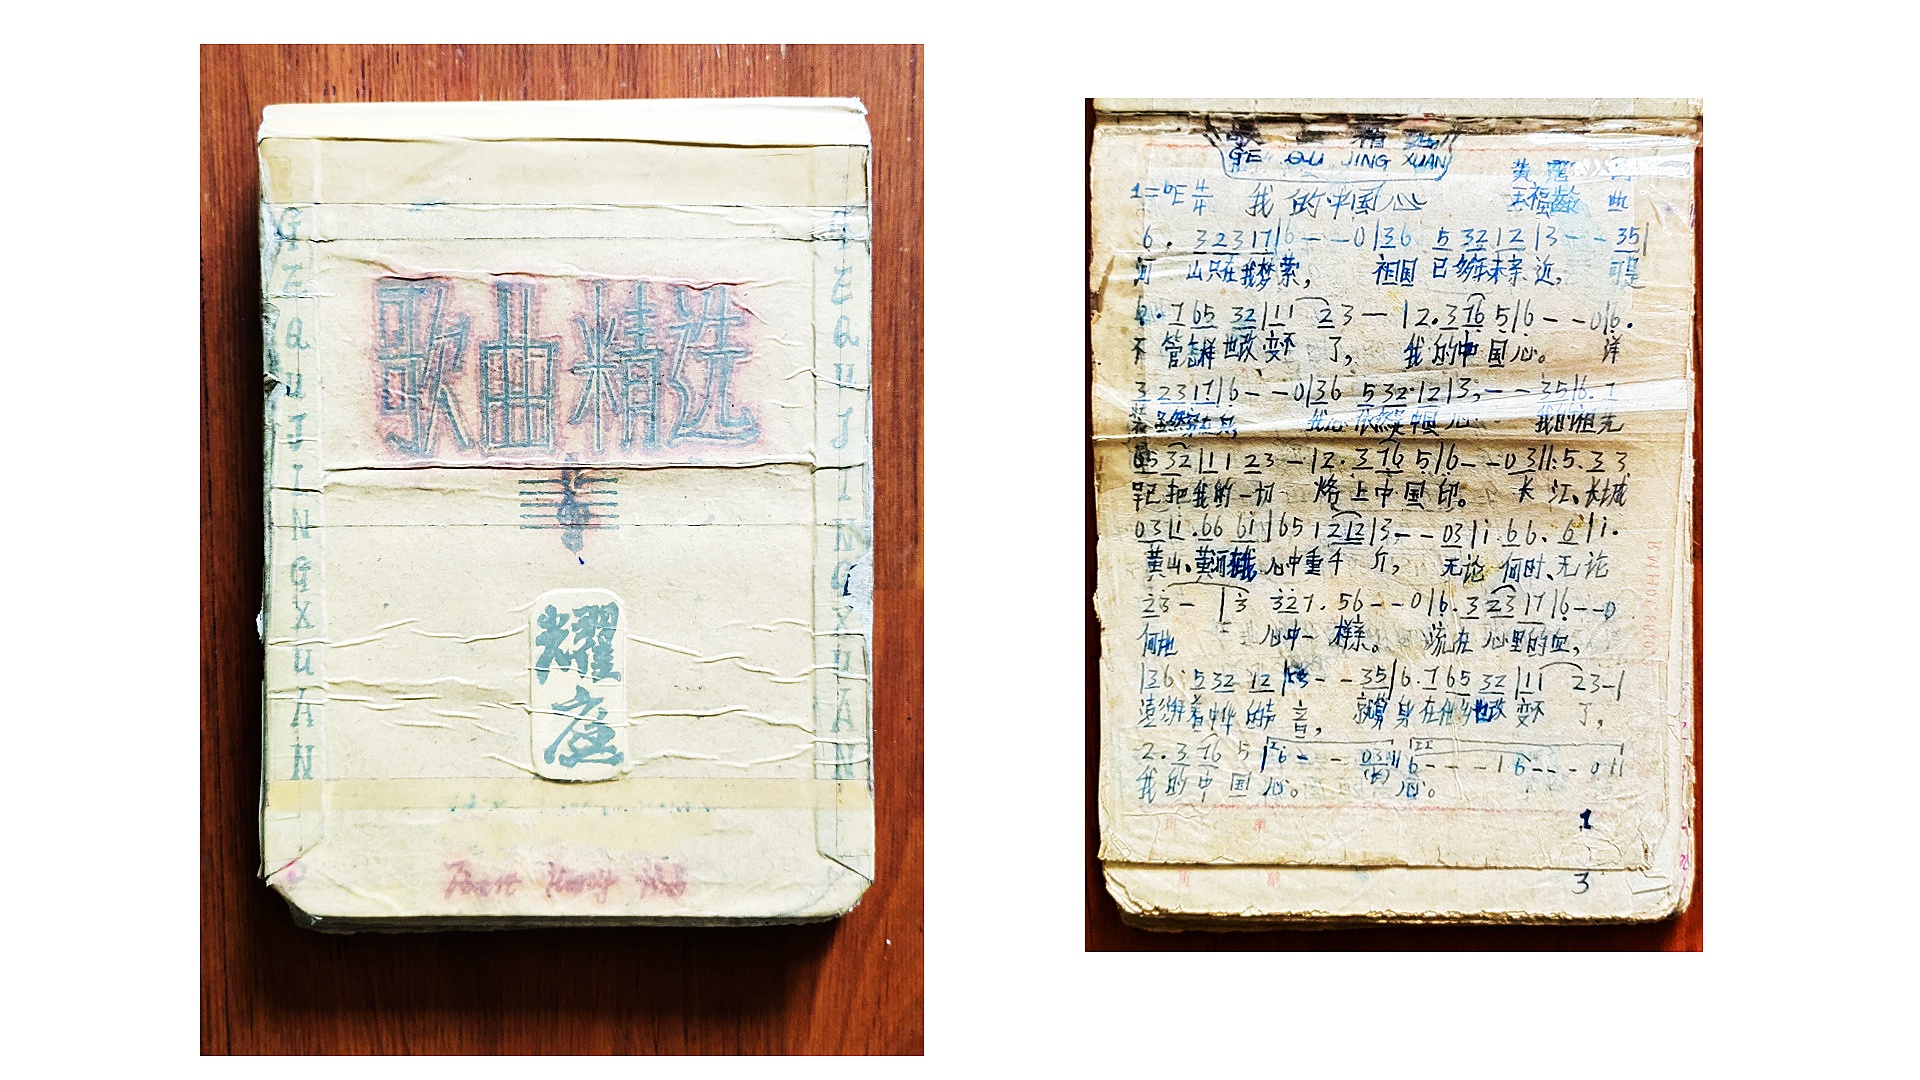 歌曲精选
GEQUJINGXUAN
GEQUJINGXUAN
耀庭
GE QU JING XUAN
1=bE 4/4 我的中国心 王福龄
6. 3 2 3 1 7|6 - - 0|3 6 5 3 2 1 2|3 - - 3 5|
河 山只在我梦萦， 祖国已多年未亲近， 可是
6. 7 6 5 3 2|1 1 2 3 —|2. 3 7 6 5|6 - - 0|6.
不管怎样也改变不了， 我的中国心。 洋
3 2 3 1 7|6 - - 0|3 6 5 3 2 1 2|3 - - 3 5|6. 7
装虽然穿在身 我心依然是中国心 我的祖先
6 5 3 2|1 1 2 3 —|2. 3 7 6 5|6 - - 0 3||: 5. 3 3
早已把我的一切 烙上中国印。 长江、长城
0 3|i. 6 6 6 i|6 5 1 2 1 2|3 - - 0 3|i. 6 6. 6|i.
黄山、黄河在我心中重千斤， 无论何时、无论
2 3 - |3 3 2 7. 5 6 - - 0|6. 3 2 3 1 7|6 - - 0
何地 心中一样亲。 流在心里的血，
|3 6 5 3 2 1 2|3 - - 3 5|6. 7 6 5 3 2|1 1 2 3 -|
澎湃着中华的声音， 就算身在他乡也改变不了，
2. 3 7 6 5|6 - - 0 3:||6 - - -|6 - - 0||
我的中国心。 (长) 心。
1
3